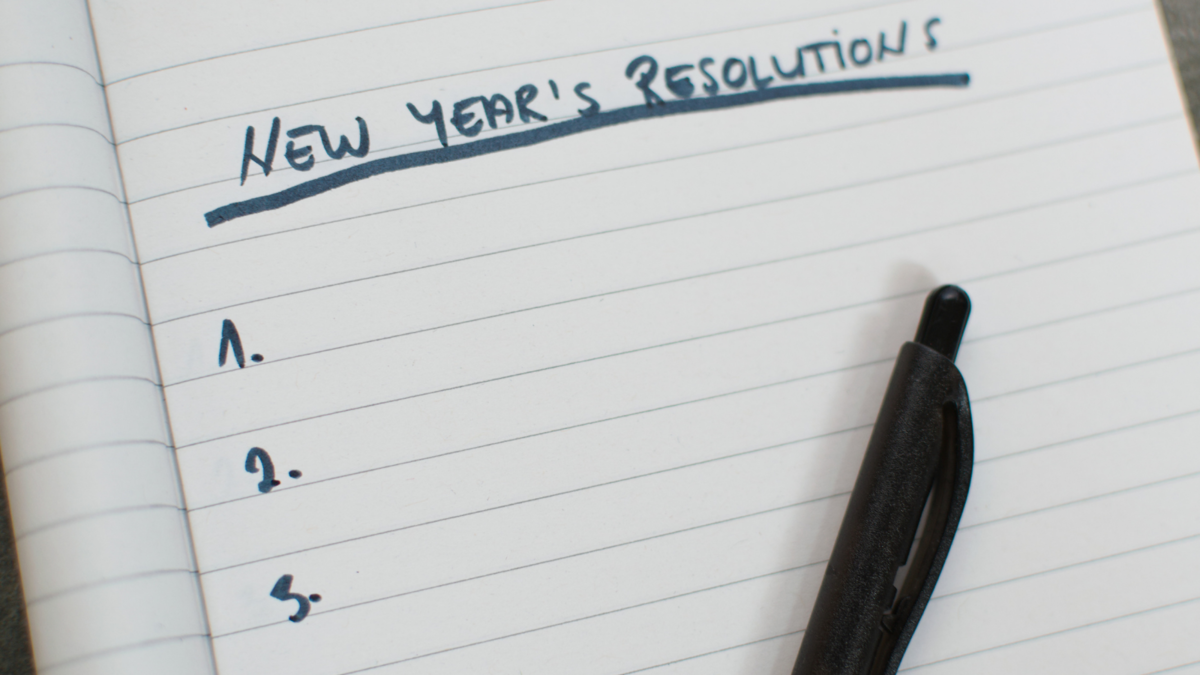 NEW YEAR'S RESOLUTIONS
1.
2.
3.